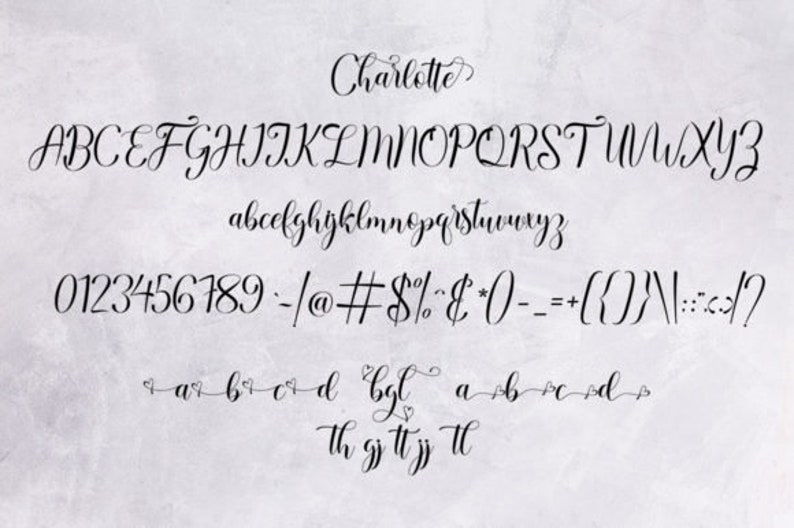 Charlotte
ABCEFGHIJKLMNOPQRSTUVWXYZ
abcefghijklmnopqrstuvwxyz
0123456789 `~!@#$%^&*()-_=+[{]}\|;:"',<.>/?
a b c d bgl a b c d
th gj tt jj tl